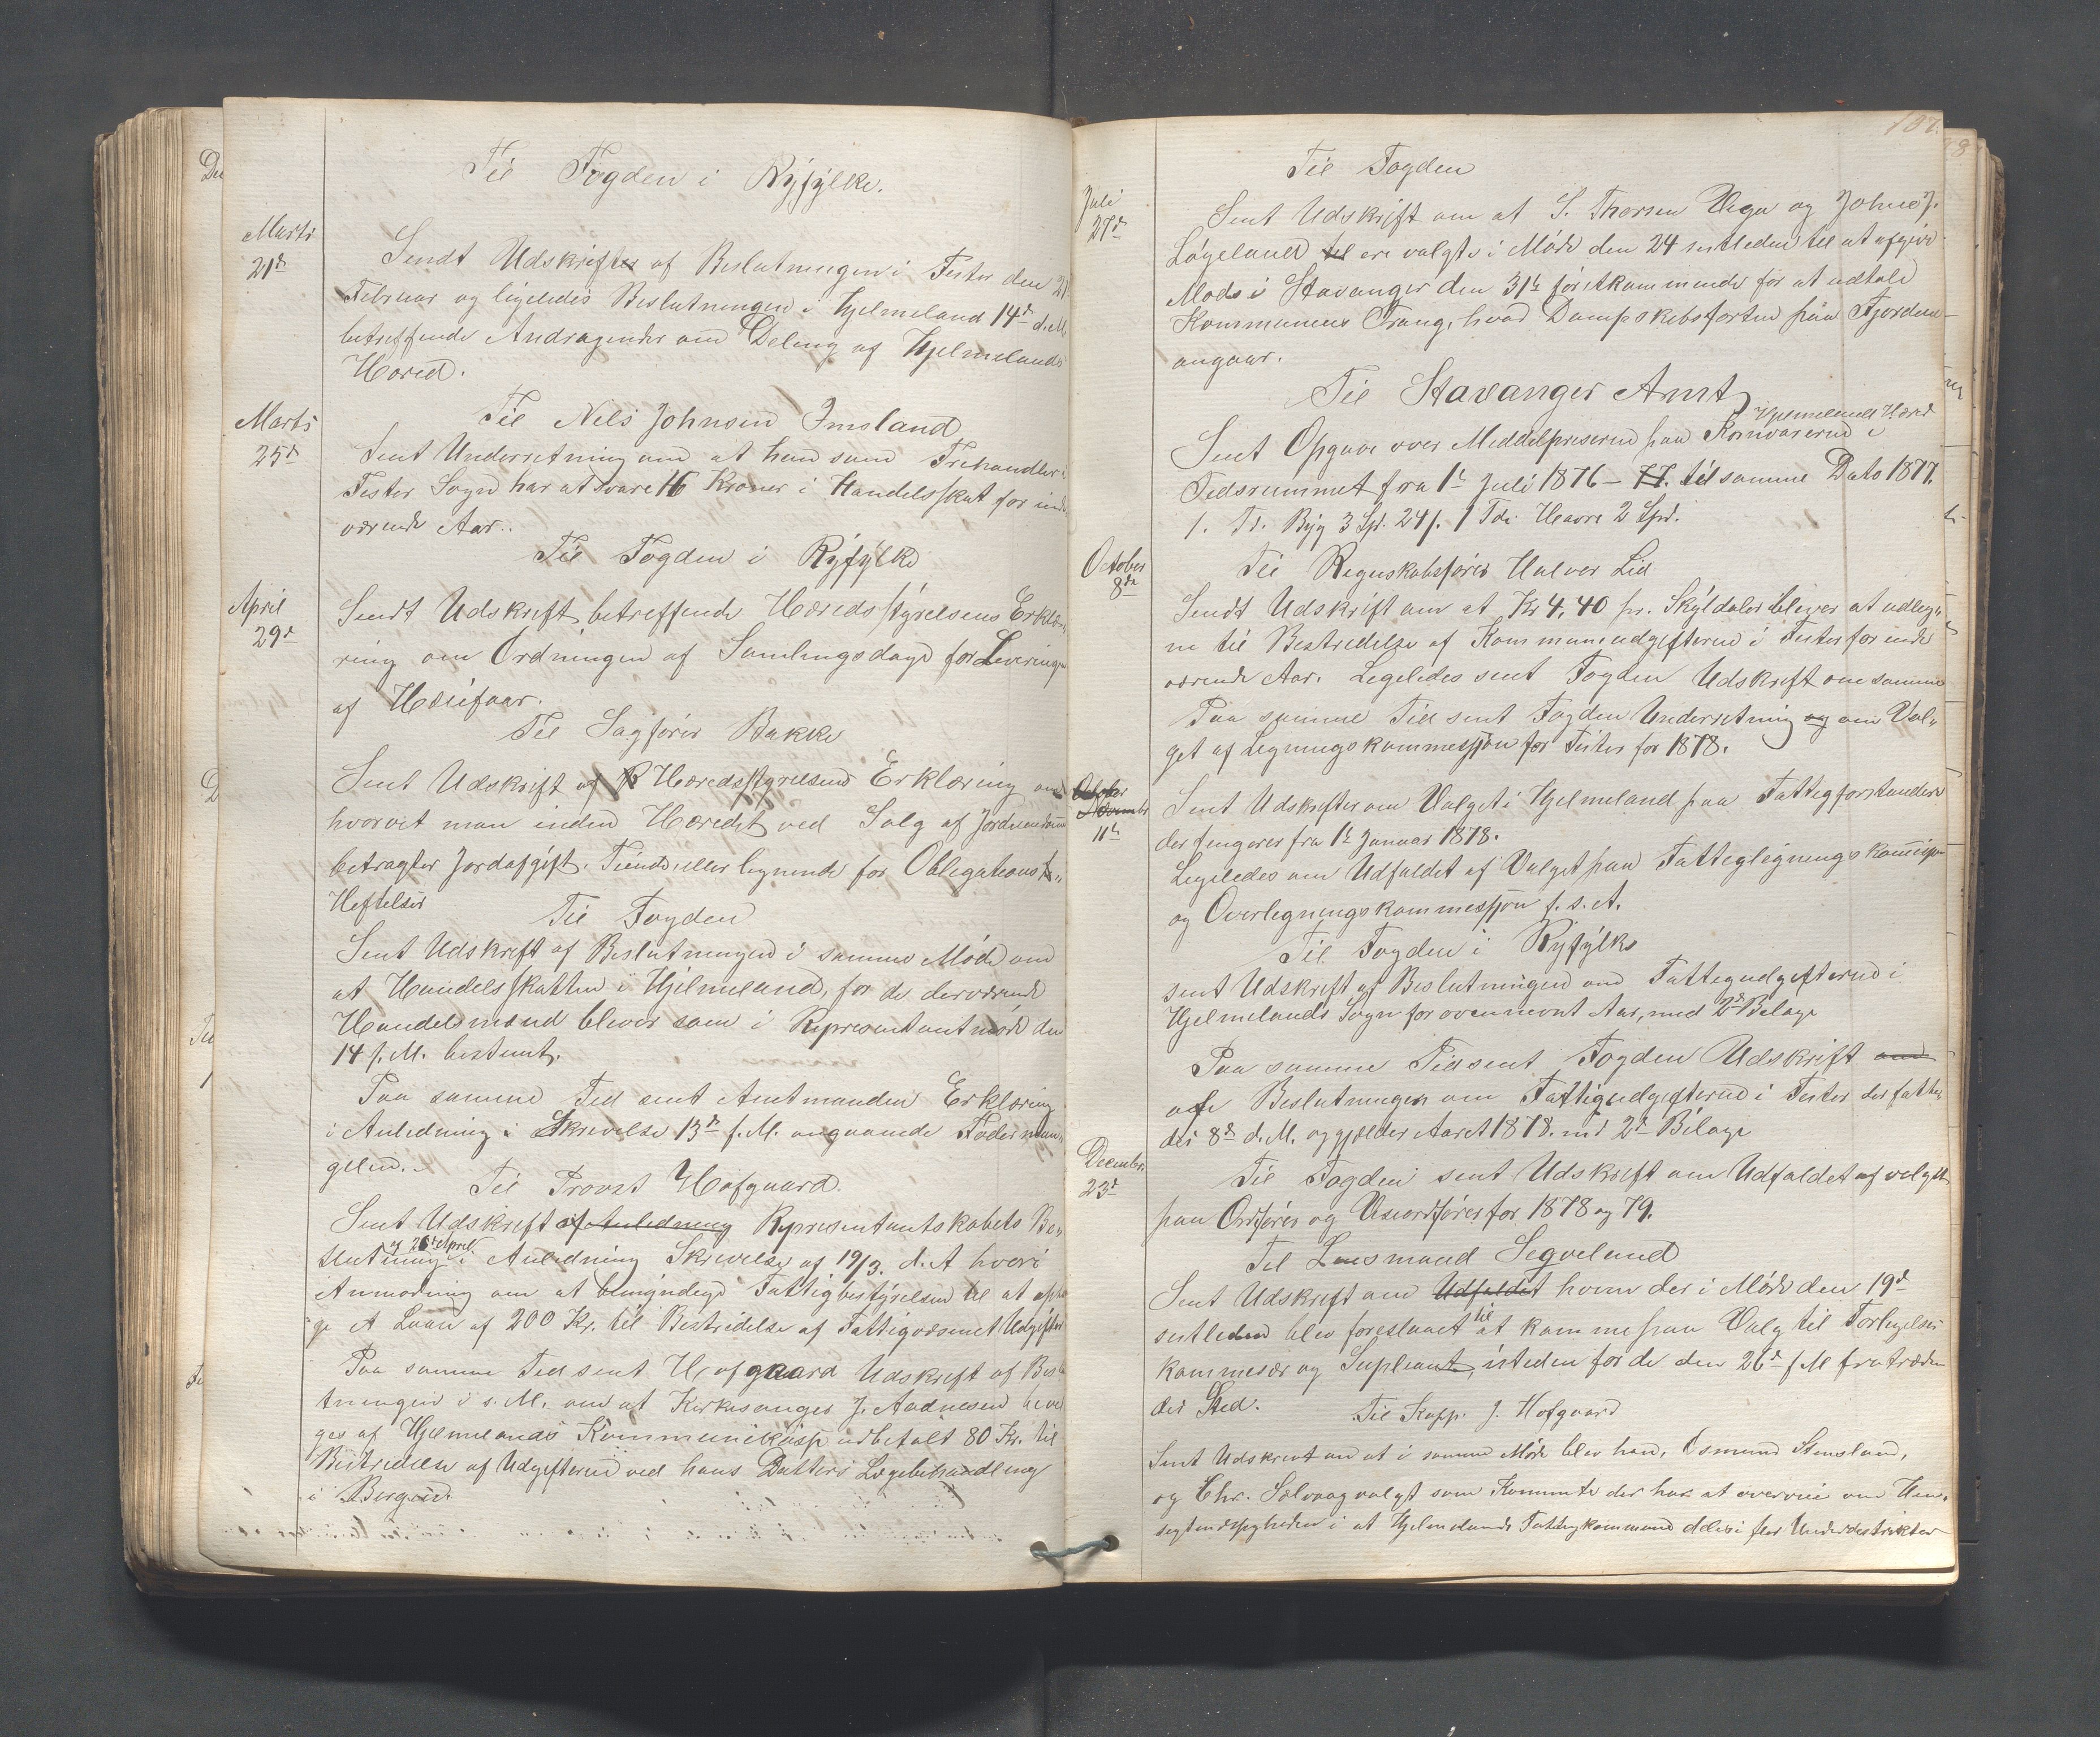 Til Fogden i Ryfylke.
Marts
21de
Sendt Udskrifter af Beslutningen i Fister den 21
Februar og ligeledes Beslutningen i Hjelmeland 14de d.M.
betreffende Andragender om Deling af Hjelmelands
Hered.
Marts
25de
Til Nels Johnsen Imsland
Sent Underretning om at han som Trehandler i
Fister Sogn har at svare 16 Kroner i Handelsskat for inde
værende Aar.
Til Fogden i Ryfylke
April
29de
Sendt Udskrift betreffende Heredsstyrelsens Erklæ„
ring om Ordningen af Samlingsdage for Levering
af
Til Sagfører Bakke
Sent Udskrift af Heredsstyrelsens Erklæring om
hvorvit man inden Heredet ved Salg af Jordeiendomme
betragter Jordafgift, Tiende eller lignende for Obligations„
Heftelser
Til Fogden
Sent Udskrift af Beslutningen i samme Møde om
at Handelsskatten i Hjelmeland, for de derværende
Handelsmænd bliver som i Representantmøde den
14 f.M. bestemt.
Paa samme Tid sent Amtmanden Erklæring
i Anledning i Skrivelse 13de f.M. angaaende Foderman„
gelen.
Til Provst Hofgaard.
Sent Udskrift af Anledning Representantskabets Be„
slutning af 26de April i Anledning Skrivelse af 19/3. d.A hvori
Anmodning om at bemyndige Fattigbestyrelsen til at opta
ge et Laan af 200 Kr. til Bestridelse af Fattigvæsenet Udgifter
Paa samme Tid sent Hofgaard Udskrift af Beslu
tningen i s. M. om at Kirkesanger J. Aadnesen bevil
ges af Hjelmelands Kommunekasse udbetalt 80 Kr. til
Bestridelse af Udgifterne ved hans Datters Lægebehandling
i Bergen.
137.
Til Fogden
Juli
27de
Sent Udskrift om at S. Thorsen Vega og Johne J.
Løgeland til ere valgte i Møde den 24 sidstleden til at afgive
Møde i Stavanger den 31te førstkommende for at udtale
Kommunens Trang, hvad Dampskibsfarten paa Fjordene
angaar.
Til Stavanger Amt
Sent Opgave over Middelpriserne paa Kornvarerne i Hjelmelands Hered
Tidsrummet fra 1te Juli 1876 – 77. til samme Dato 1877.
1. Td. Byg 3 Spd. 24 s. 1 Tde Havre 2 Spd.
October
8de
Til Regnskabsfører Halvor Lid
Sendt Udskrift om at Kr 4,40 pr. Skyldaler bliver at udleg„
ne til Bestridelse af Kommuneudgifterne i Fister for inde
værende Aar. Ligeledes sent Fogden Udskrift om samme
Paa samme Tid sent Fogden Underretning og om Val„
get af Ligningskommission for Fister for 1878.
October
Novembr
11te
Sent Udskrifter om Valget i Hjelmeland paa Fattigforstandere
der fungerer fra 1te Januar 1878.
Ligeledes om Udfaldet af Valget paa Fattigligningskommission
og Overligningskommission f. s. A.
Til Fogden i Ryfylke
sent Udskrift af Beslutningen om Fattigudgifterne i
Hjelmelands Sogn for ovennevnt Aar, med 2de Belage
Paa samme Tid sent Fogden Udskrift om
af Beslutningen om Fattigudgifterne i Fister der fatte„
des 8de d.M. og gjelder Aaret 1878. md 2de Bilage
Decembr.
23de
Til Fogden sent Udskrift om Udfaldet af valget
paa Ordfører og Viseordfører for 1878 og 79.
Til Lensmand Segveland
Sent Udskrift om Udfaldet hvem der i Møde den 19de
sidstleden blev foreslaaet til at komme paa Valg til Forligelses
kommesær og Supleant, isteden for de den 26de f M fratræden
des Sted.
Til Kapp. J. Hofgaard
Sent Udskrivt om at i samme Møde blev han, Osmund Stensland,
og Chr. Solvaag valgt som Kommite der har at overveie om Hen„
sigtmæssigheden i at Hjelmelands Fattigkommune deles i fler Underdistrikter